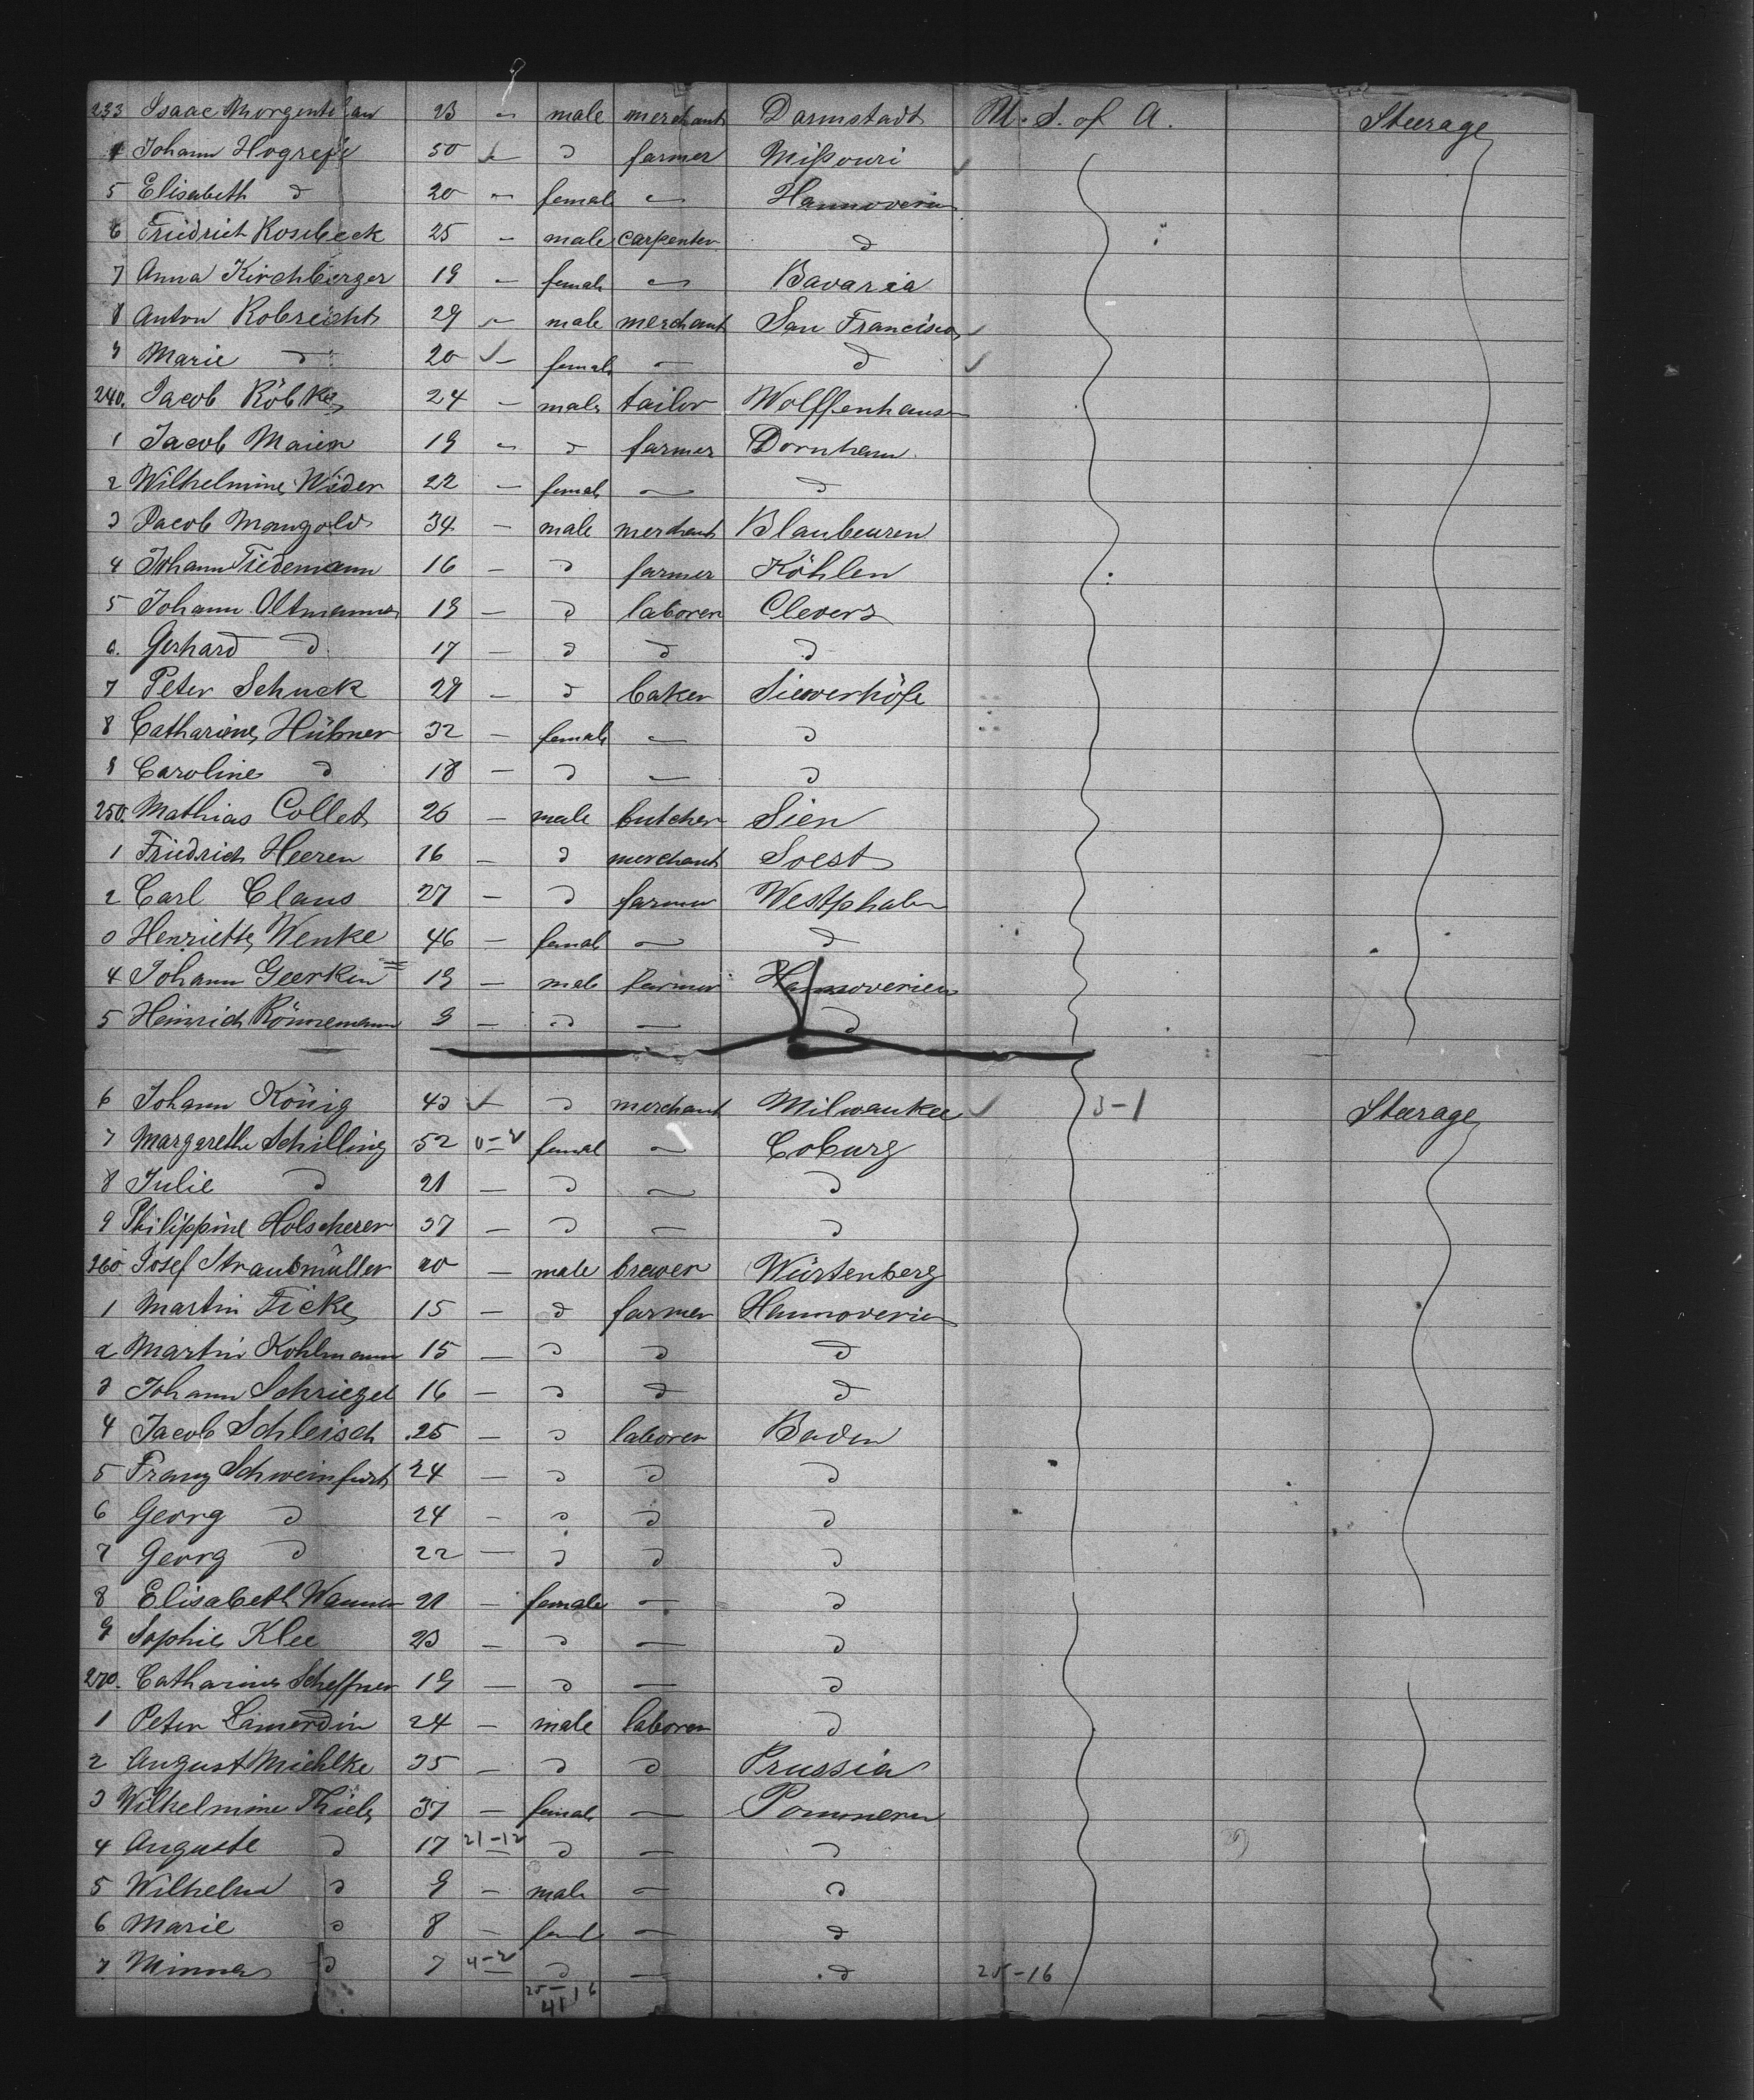 233 Isaac Morgenthau 23 " male merchant Darmstadt U. S. of A. Steerage
4 Johann Hogrefe 50 — d farmer Missouri
5 Elisabeth d 20 — female — Hannoverien
6 Friedrich Rosebeck 25 — male carpenter d
7 Anna Kirchberger 19 — female — Bavaria
8 Anton Kobrecht 29 — male merchant San Francisco
9 Marie d 20 — female — d
240. Jacob Röbke 24 — male tailor Wolffenhausen
1 Jacob Maier 19 — d farmer Dornham
2 Wilhelmine Wider 22 — female — d
3 Jacob Mangold 34 — male merchant Blaubeuren
4 Johann Tiedemann 16 — d farmer Köhlen
5 Johann Oltmanns 19 — d laborer Clevers
6. Gerhard d 17 — d d d
7 Peter Schuck 29 — d baker Siewerhöfe
8 Catharine Hübner 32 — female — d
9 Caroline d 18 — d — d
250. Mathias Collet 26 — male butcher Sien
1 Friedrich Heeren 16 — d merchant Soest
2 Carl Claus 27 — d farmer Westphalen
3 Henriette Wenke 46 — female — d
4 Johann Geerken 19 — male farmer Hannoverien
5 Heinrich Rönnemann 9 — d — d
6 Johann König 43 d merchant Milwaukee 3-1 Steerage
7 Margarethe Schilling 52 0-2 female — Coburg
8 Julie d 21 — d — d
9 Philippine Holscherer 37 — d — d
260 Josef Straubmüller 20 — male brewer Würtenberg
1 Martin Ficke 15 — d farmer Hannoverien
2 Martin Kohlmann 15 — d d d
3 Johann Schriegel 16 — d d d
4 Jacob Schleisch 25 — d laborer Baden
5 Franz Schweinfurt 24 — d d d
6 Georg d 24 — d d d
7 Georg d 22 — d d d
8 Elisabeth Wanner 21 — female — d
9 Sophie Klee 23 — d — d
270. Catharine Scheffner 19 — d — d
1 Peter Lamerdin 24 — male laborer d
2 August Miehlke 35 — d d Prussia
3 Wilhelmine Thiele 37 — female — Pommern
4 Auguste d 17 21-12 d — d
5 Wilhelm d 9 — male — d
6 Marie d 8 — female — d
7 Minna d 7 4-2 d — d 25-16
25-16
41